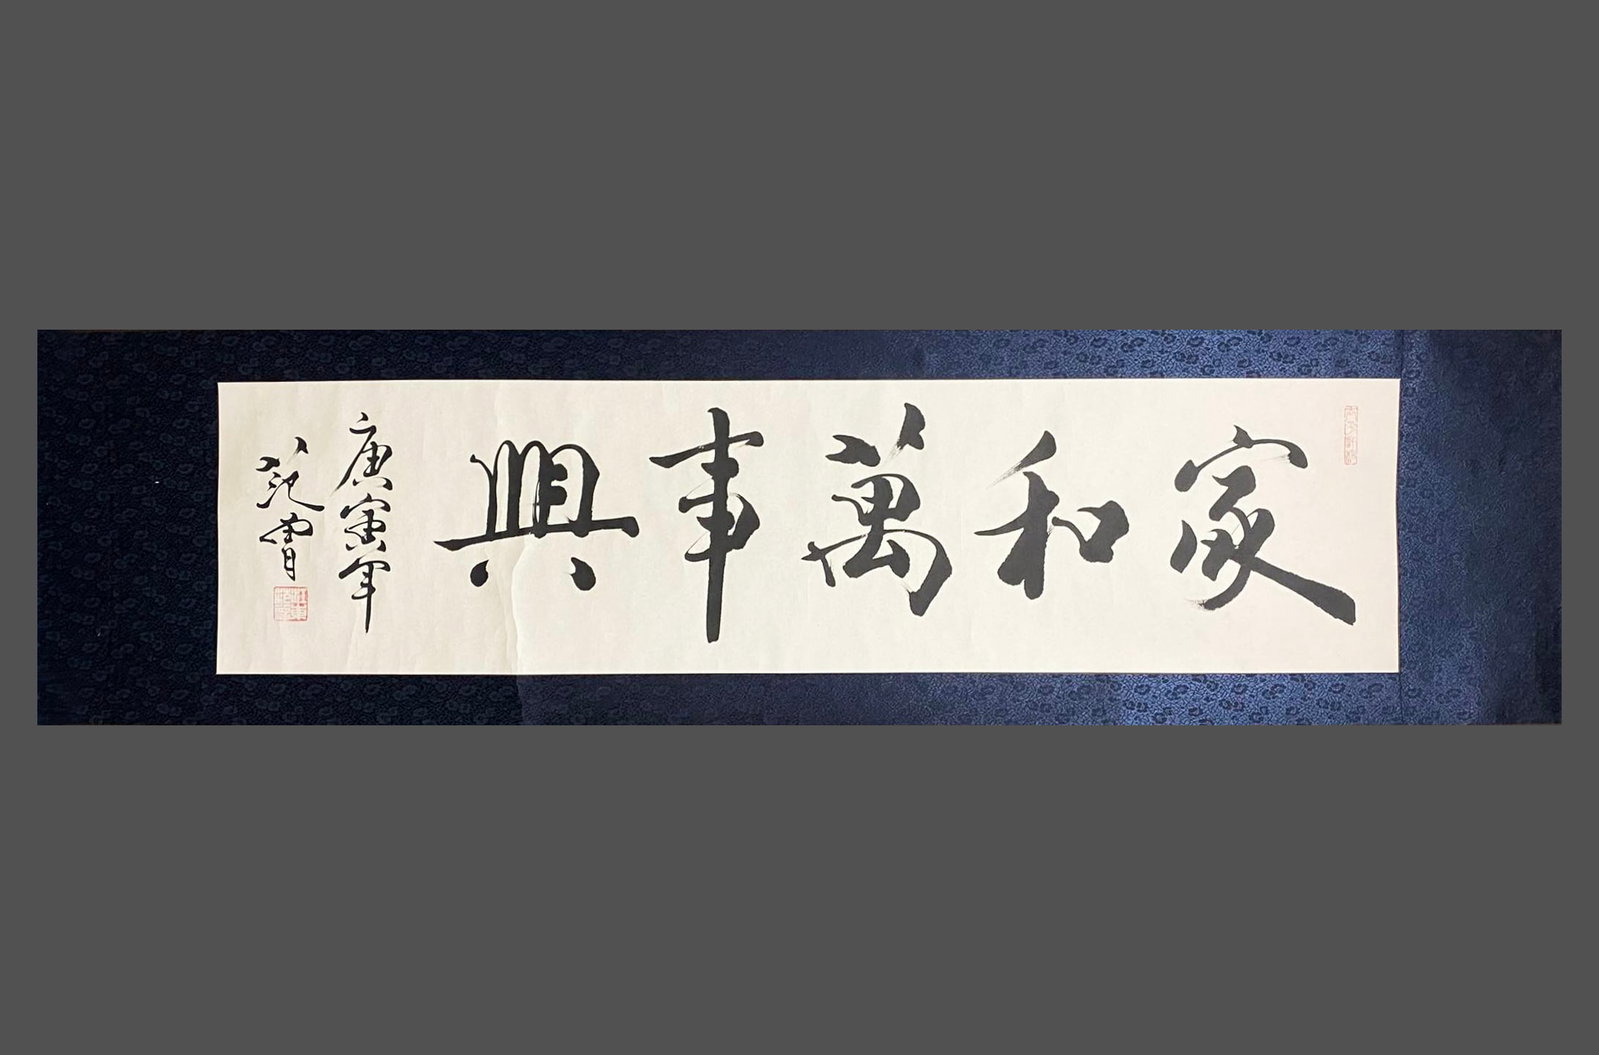 家和萬事興
庚寅年
范曾